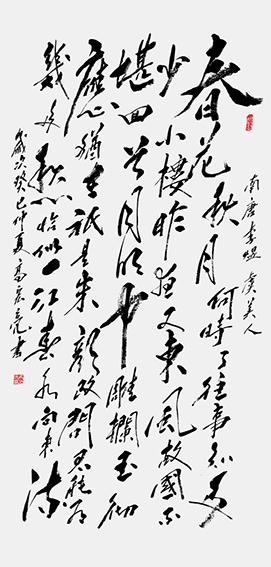 南唐李煜虞美人
春花秋月何時了往事知多
少小樓昨夜又東風故國不
堪回首月明中雕欄玉砌
應猶在祇是朱顏改問君能有
幾多愁恰似一江春水向東流
歲次癸巳仲夏高亮書